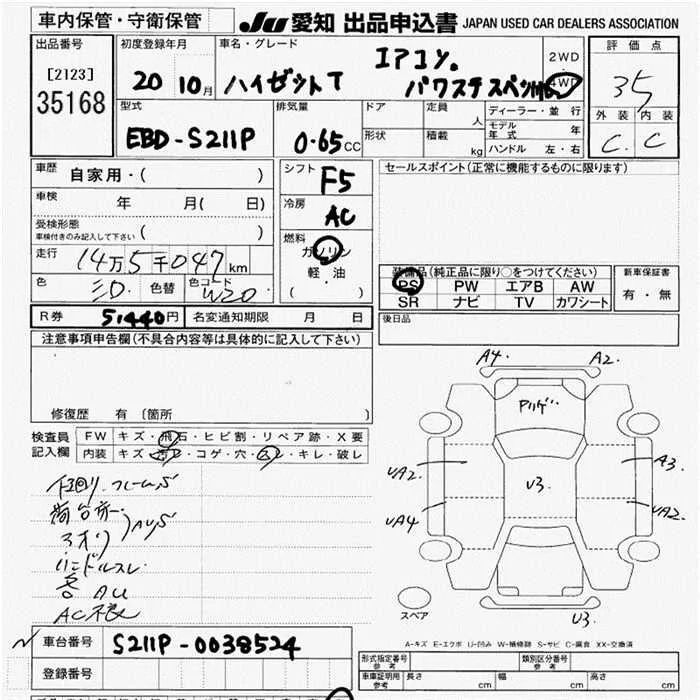 車内保管・守衛保管
JU 愛知 出品申込書 JAPAN USED CAR DEALERS ASSOCIATION
出品番号
[2123]
35168
初度登録年月
20 10月
車名・グレード
ハイゼットT
エアコン。
パワステスペシャル
2WD
4WD
評価点
35
外装 内装
C. C
型式
EBD-S211P
排気量
0.65CC
ドア
形状
定員 人
積載 kg
ディーラー・並行
モデル年式 年
ハンドル 左・右
車歴 自家用・( )
車検 年 月( 日)
受検形態
車検付きのみ記入して下さい ( )
走行 14万5千047km
色 シロ 色替 色コード W20
シフト F5
冷房 AC
燃料
ガソリン
軽・油
( )
セールスポイント(正常に機能するものに限ります)
装備品(純正品に限り○をつけてください)
PS PW エアB AW
SR ナビ TV カワシート
新車保証書
有・無
R券 51440円 名変通知期限 月 日
後日品
注意事項申告欄(不具合内容等は具体的に記入して下さい)
修復歴 有 〔箇所 〕
検査員記入欄
FW キズ・飛石・ヒビ割・リペア跡・X要
内装 キズ・汚レ・コゲ・穴・スレ・キレ・破レ
下回り.フレームS
荷台
アオリ AUS
ハンドルスレ
各 AU
AC不良
A4. A2.
UA2. U3. A3.
UA4 UA2.
スペア
U3.
A-キズ E-エクボ U-凹み W-補修跡 S-サビ C-腐食 XX-交換済
車台番号 S211P-0038524
登録番号
型式指定番号 参考
類別区分番号 参考
車庫証明用 参考 長さ cm 幅 cm 高さ cm